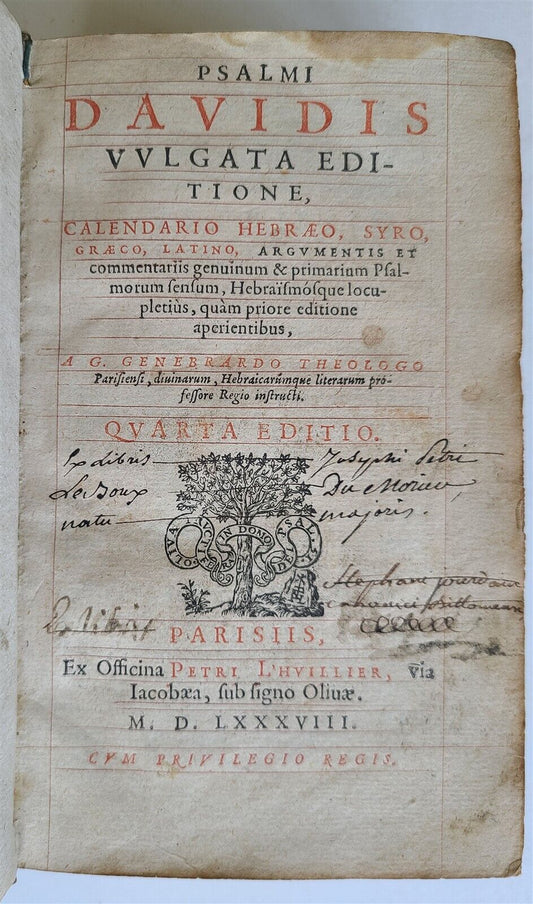 PSALMI
DAVIDIS
VVLGATA EDI-
TIONE,
CALENDARIO HEBRÆO, SYRO,
GRÆCO, LATINO, ARGVMENTIS ET
commentariis genuinum & primarium Psal-
morum sensum, Hebraïsmósque locu-
pletiùs, quàm priore editione
aperientibus,
A G. GENEBRARDO THEOLOGO
Parisiensi, diuinarum, Hebraicarúmque literarum pro-
fessore Regio instructi.
QVARTA EDITIO.
Ex Libris Josephi Petri
Le Doux Du
natu majoris.
OLIVA FRVCTIF IN DOMO
Ex libris
PARISIIS,
Ex Officina PETRI L'HVILLIER, via
Iacobæa, sub signo Oliuæ.
M. D. LXXXVIII.
CVM PRIVILEGIO REGIS.